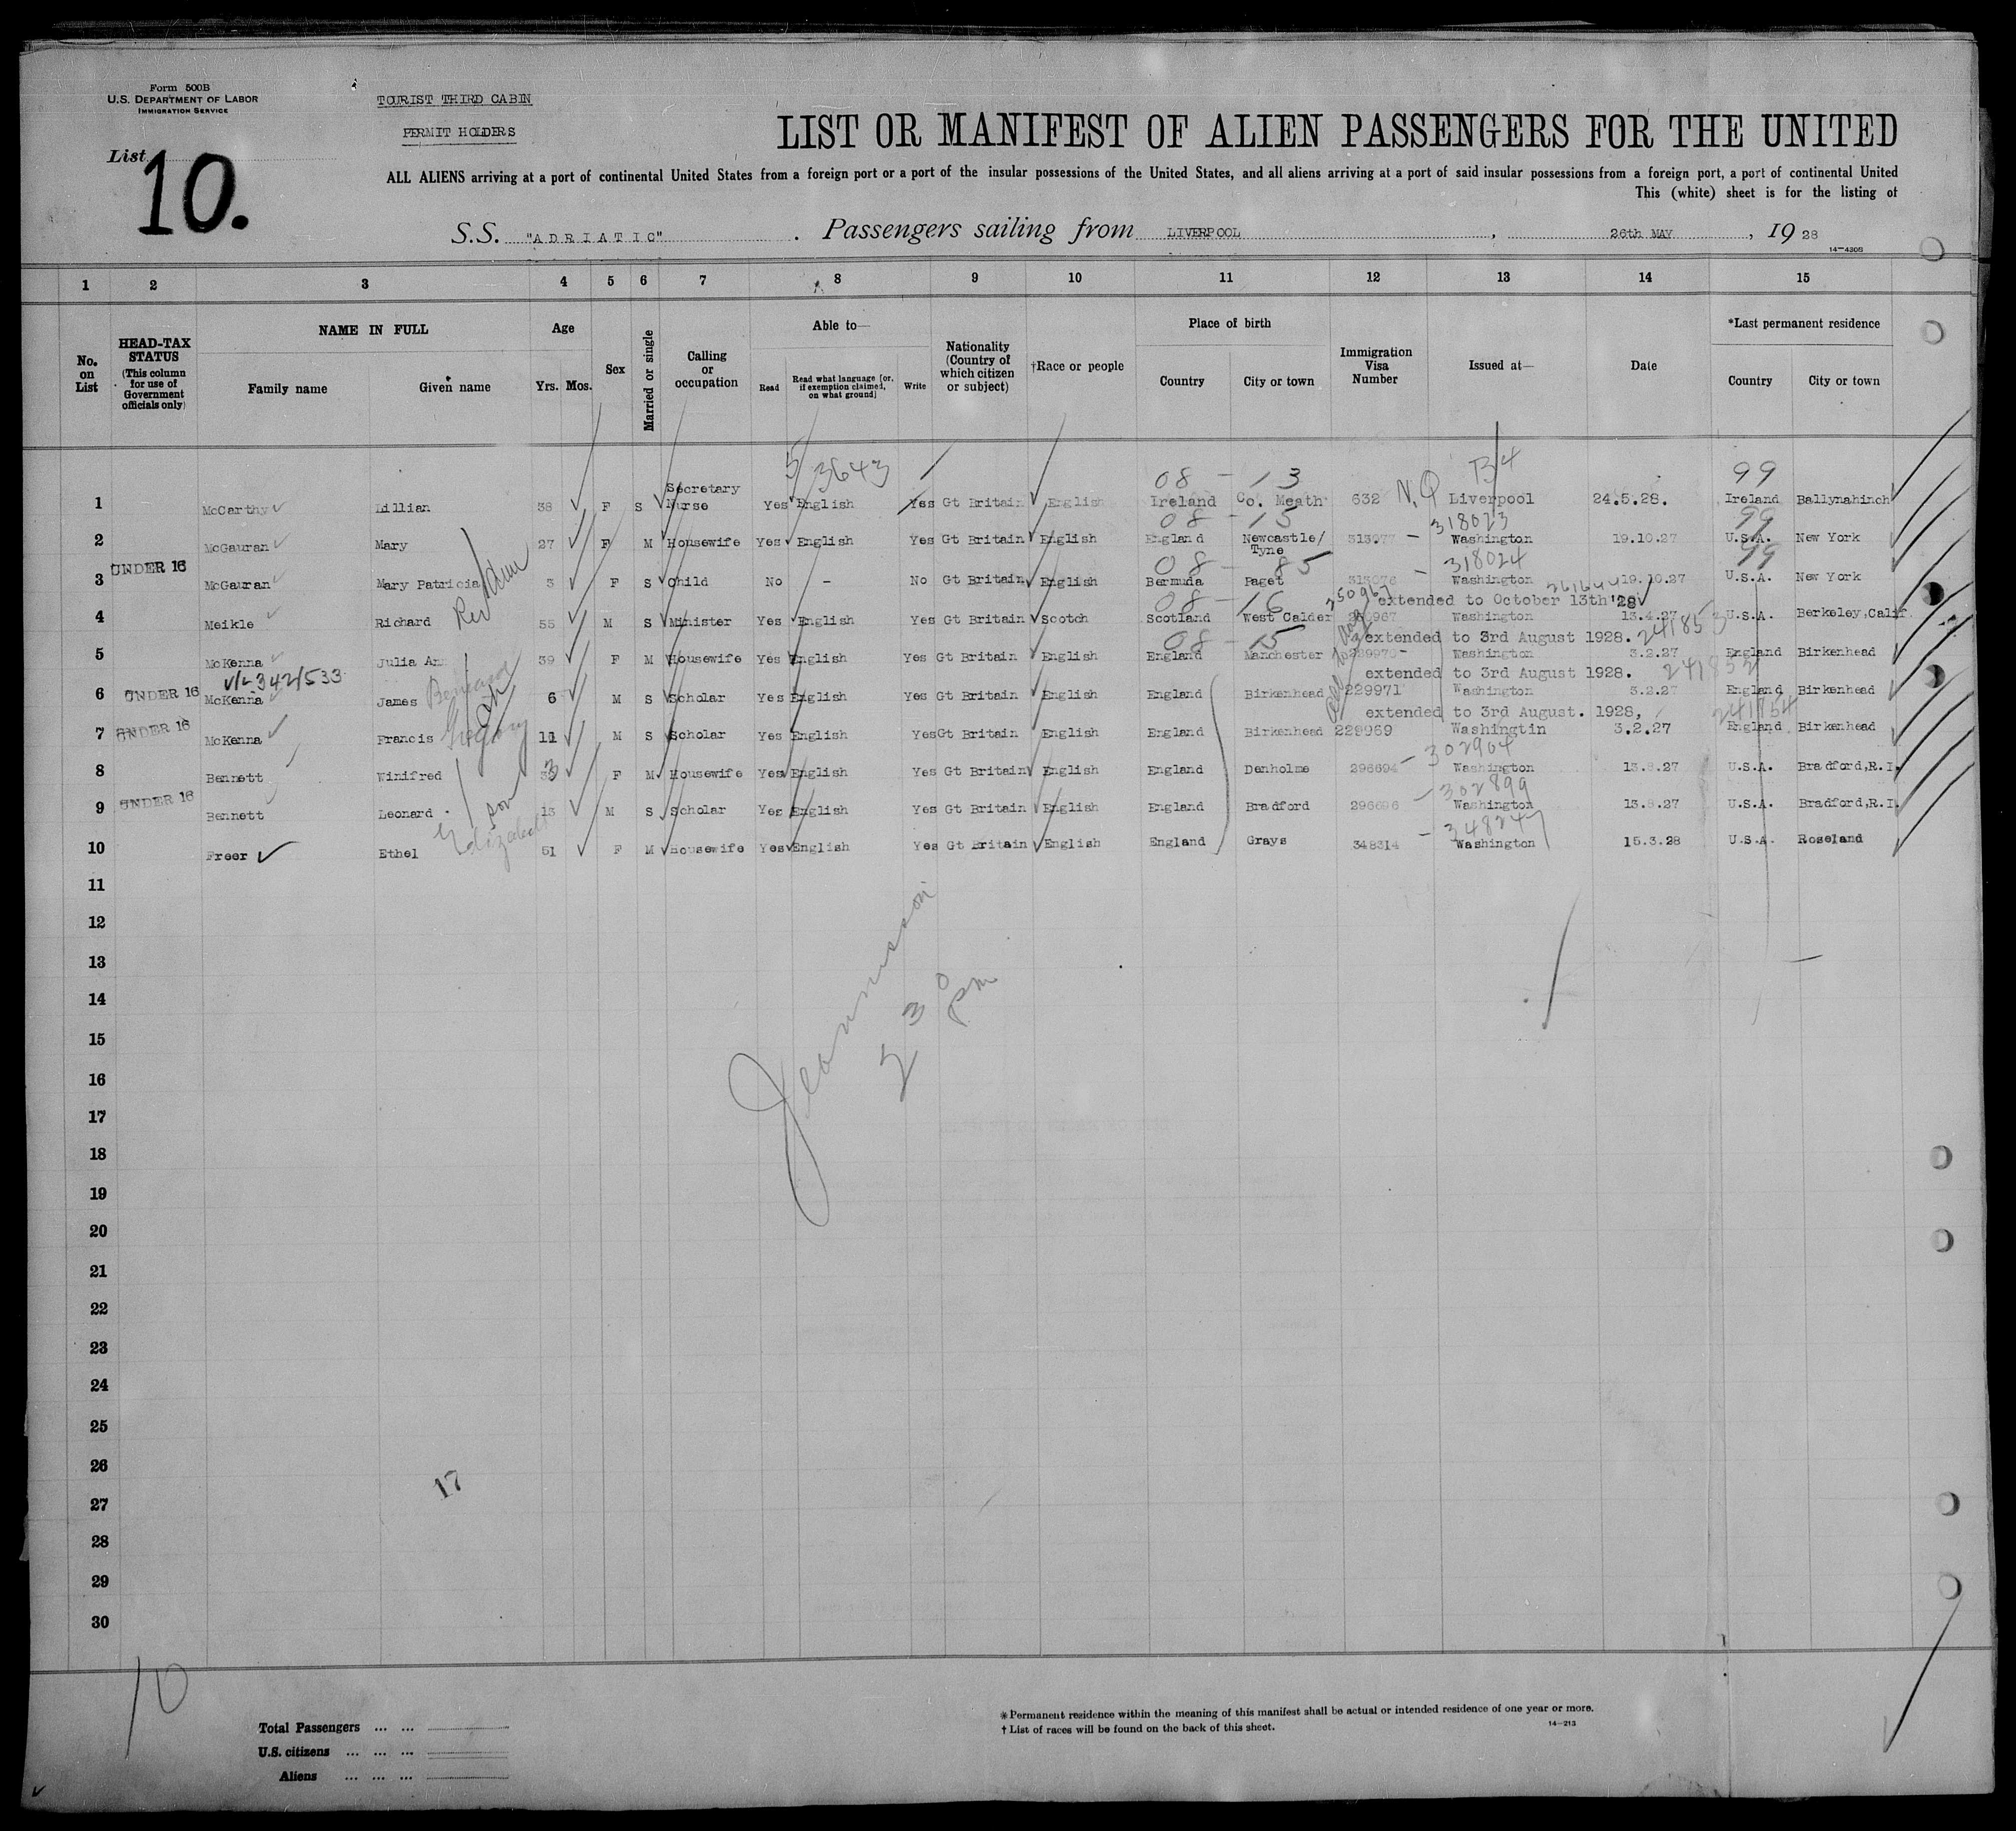 Form 500B
U.S. DEPARTMENT OF LABOR
IMMIGRATION SERVICE
TOURIST THIRD CABIN
PERMIT HOLDERS
List 10.
LIST OR MANIFEST OF ALIEN PASSENGERS FOR THE UNITED
ALL ALIENS arriving at a port of continental United States from a foreign port or a port of the insular possessions of the United States, and all aliens arriving at a port of said insular possessions from a foreign port, a port of continental United
This (white) sheet is for the listing of
S.S. "ADRIATIC" . Passengers sailing from LIVERPOOL , 26th MAY , 19 28
14-4308
1 2 3 4 5 6 7 8 9 10 11 12 13 14 15
No. on List
HEAD-TAX STATUS (This column for use of Government officials only)
NAME IN FULL
Family name Given name
Age
Yrs. Mos.
Sex
Married or single
Calling or occupation
Able to—
Read Read what language [or, if exemption claimed, on what ground] Write
Nationality (Country of which citizen or subject)
†Race or people
Place of birth
Country City or town
Immigration Visa Number
Issued at—
Date
*Last permanent residence
Country City or town
5 3643 08 - 13 B4 99
1 McCarthy Lillian 38 F S Secretary Nurse Yes English Yes Gt Britain English Ireland Co. Meath 632 N.Q Liverpool 24.5.28. Ireland Ballynahinch
08 - 15 318023 99
2 McGauran Mary 27 F M Housewife Yes English Yes Gt Britain English England Newcastle/Tyne 313077 - Washington 19.10.27 U.S.A. New York
08 - 85 318024 99
3 UNDER 16 McGauran Mary Patricia 3 F S Child No - No Gt Britain English Bermuda Paget 313076 - Washington 19.10.27 U.S.A. New York
08 - 16 250967 extended to October 13th '28
4 Meikle Richard Rev Adam 55 M S Minister Yes English Yes Gt Britain Scotch Scotland West Calder Washington 13.4.27 U.S.A. Berkeley,Calif
08 - 15 extended to 3rd August 1928. 241853
5 McKenna Julia Ann 39 F M Housewife Yes English Yes Gt Britain English England Manchester 229970 - Washington 3.2.27 England Birkenhead
extended to 3rd August 1928. 241852
6 UNDER 16 McKenna James Bernard 6 M S Scholar Yes English Yes Gt Britain English England Birkenhead 229971 Washington 3.2.27 England Birkenhead
extended to 3rd August. 1928, 241854
7 UNDER 16 McKenna Francis Gregory 11 M S Scholar Yes English Yes Gt Britain English England Birkenhead 229969 Washingtin 3.2.27 England Birkenhead
302904
8 Bennett Winifred 33 F M Housewife Yes English Yes Gt Britain English England Denholme 296694 - Washington 13.8.27 U.S.A. Bradford,R.I.
302899
9 UNDER 16 Bennett Leonard son 13 M S Scholar Yes English Yes Gt Britain English England Bradford 296696 - Washington 13.8.27 U.S.A. Bradford,R.I.
34824
10 Freer Ethel Elizabeth 51 F M Housewife Yes English Yes Gt Britain English England Grays 348314 - Washington 15.3.28 U.S.A. Roseland
11
12
13
14
15
16
17
18
19
20
21
22
23
24
25
26
27
28
29
30
2 30 pm
17
10
Total Passengers ... ...
U.S. citizens ... ... ...
Aliens ... ... ...
* Permanent residence within the meaning of this manifest shall be actual or intended residence of one year or more.
† List of races will be found on the back of this sheet.
14-213